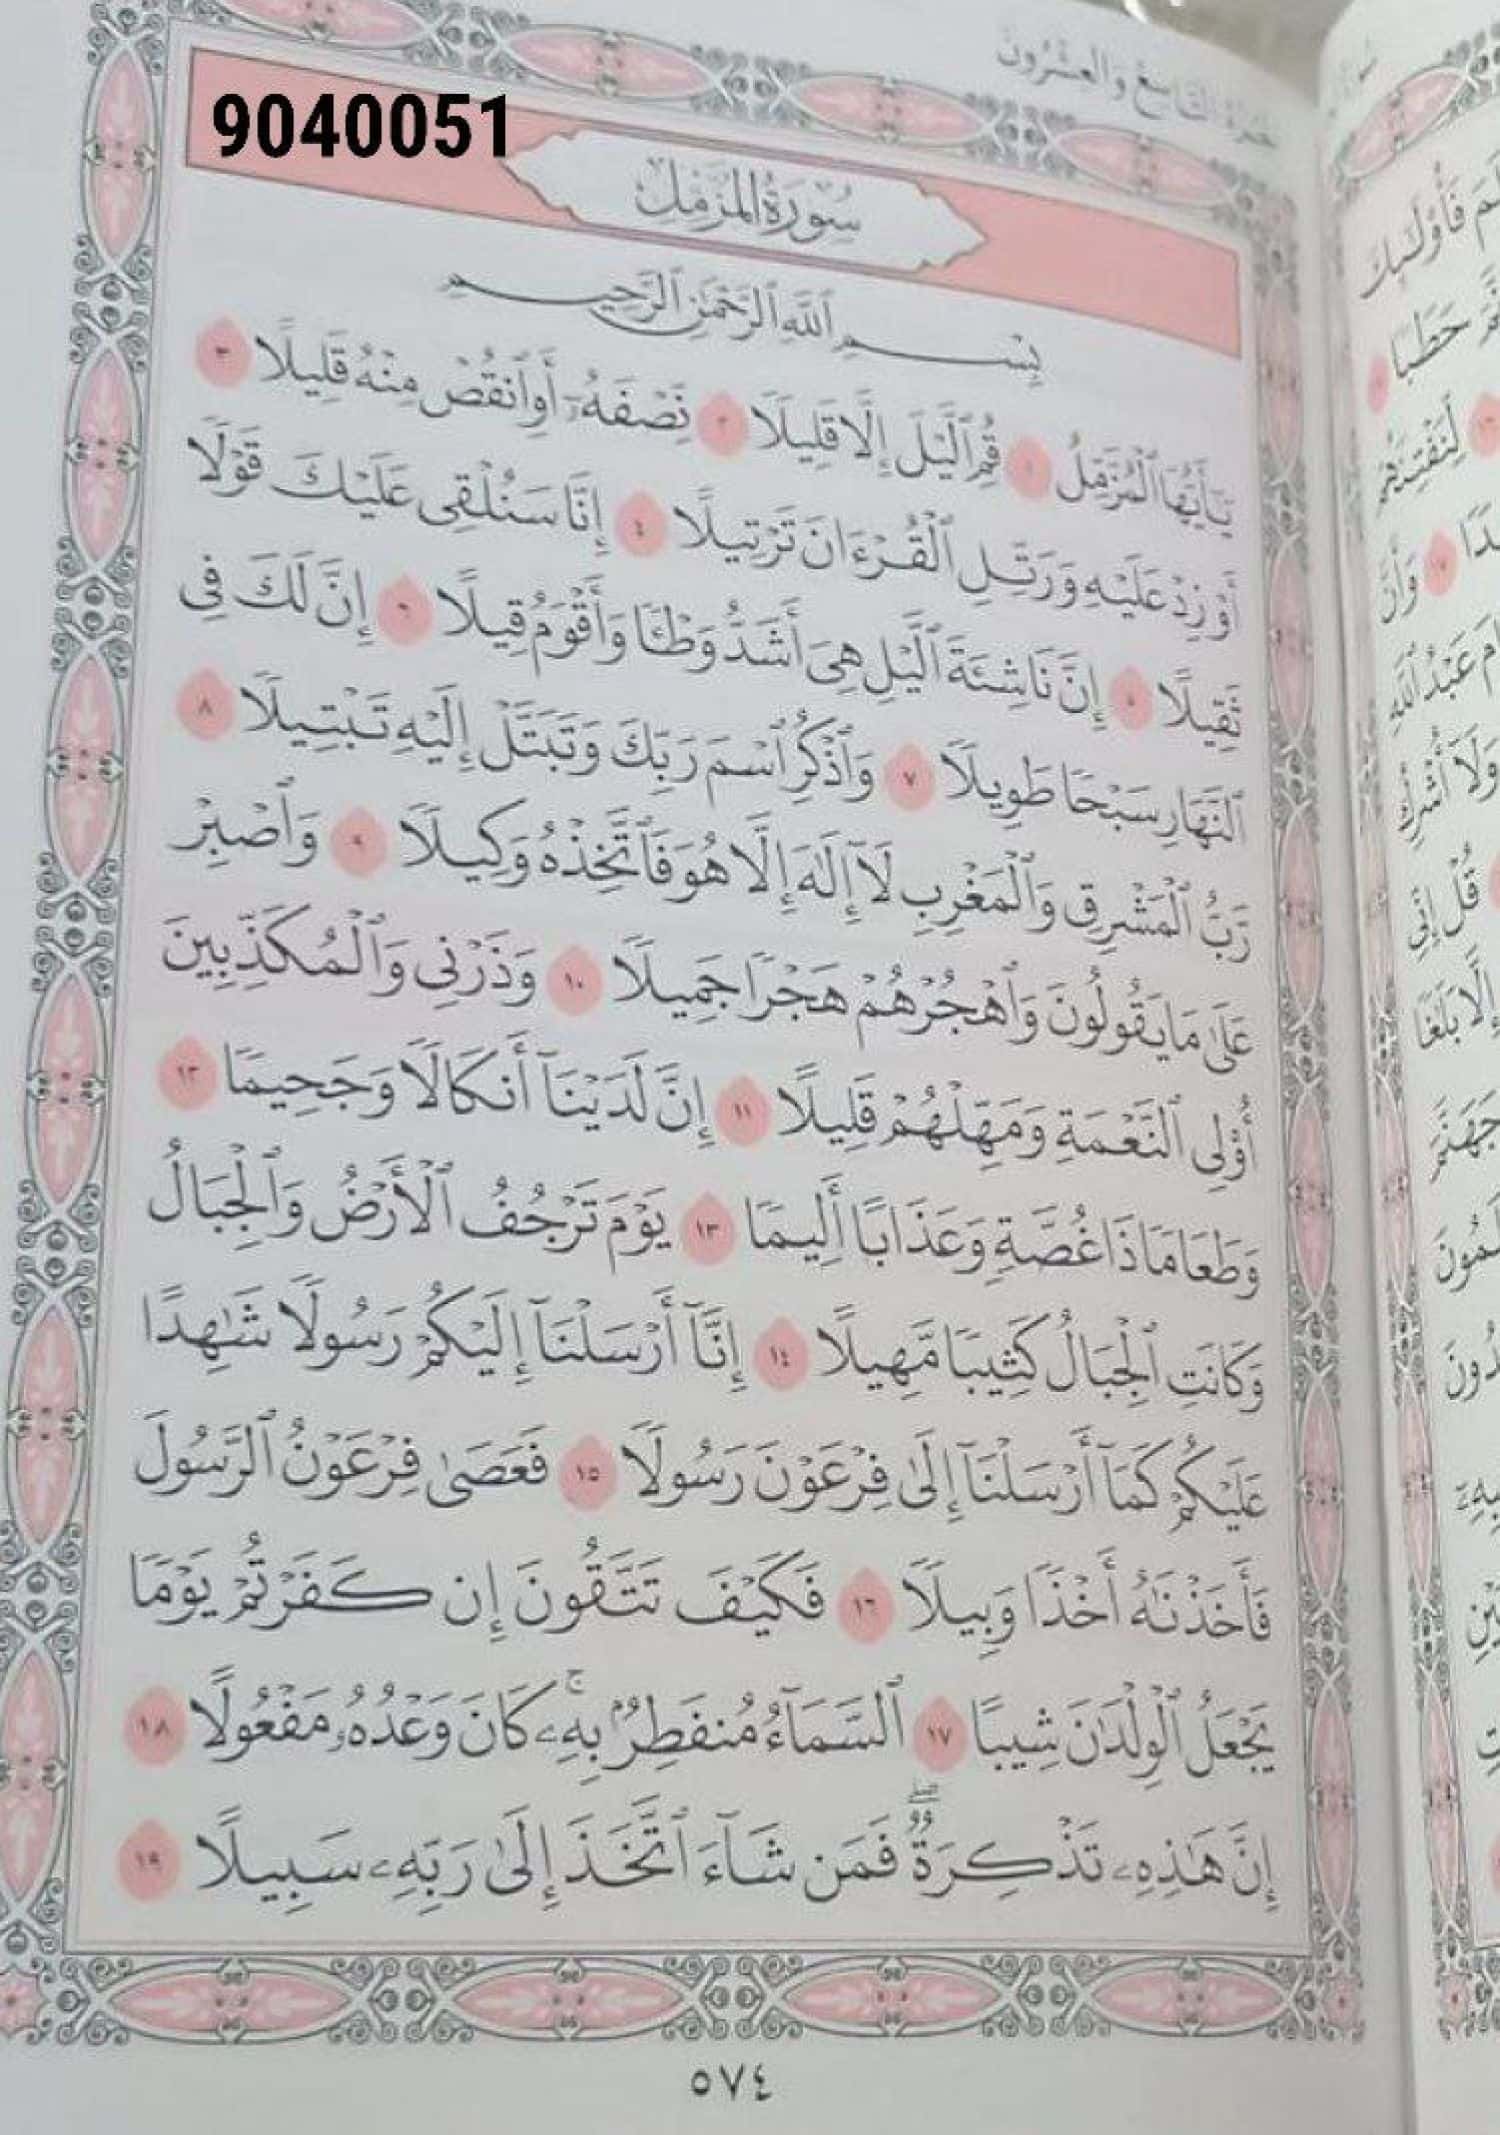 9040051
الجزء التاسع والعشرون
سُورَةُ المُزَّمِّل
بِسْمِ ٱللَّهِ ٱلرَّحْمَٰنِ ٱلرَّحِيمِ
يَٰٓأَيُّهَا ٱلْمُزَّمِّلُ ١ قُمِ ٱلَّيْلَ إِلَّا قَلِيلًا ٢ نِّصْفَهُۥٓ أَوِ ٱنقُصْ مِنْهُ قَلِيلًا ٣
أَوْ زِدْ عَلَيْهِ وَرَتِّلِ ٱلْقُرْءَانَ تَرْتِيلًا ٤ إِنَّا سَنُلْقِى عَلَيْكَ قَوْلًا
ثَقِيلًا ٥ إِنَّ نَاشِئَةَ ٱلَّيْلِ هِىَ أَشَدُّ وَطْـًٔا وَأَقْوَمُ قِيلًا ٦ إِنَّ لَكَ فِى
ٱلنَّهَارِ سَبْحًا طَوِيلًا ٧ وَٱذْكُرِ ٱسْمَ رَبِّكَ وَتَبَتَّلْ إِلَيْهِ تَبْتِيلًا ٨
رَّبُّ ٱلْمَشْرِقِ وَٱلْمَغْرِبِ لَآ إِلَٰهَ إِلَّا هُوَ فَٱتَّخِذْهُ وَكِيلًا ٩ وَٱصْبِرْ
عَلَىٰ مَا يَقُولُونَ وَٱهْجُرْهُمْ هَجْرًا جَمِيلًا ١٠ وَذَرْنِى وَٱلْمُكَذِّبِينَ
أُو۟لِى ٱلنَّعْمَةِ وَمَهِّلْهُمْ قَلِيلًا ١١ إِنَّ لَدَيْنَآ أَنكَالًا وَجَحِيمًا ١٢
وَطَعَامًا ذَا غُصَّةٍ وَعَذَابًا أَلِيمًا ١٣ يَوْمَ تَرْجُفُ ٱلْأَرْضُ وَٱلْجِبَالُ
وَكَانَتِ ٱلْجِبَالُ كَثِيبًا مَّهِيلًا ١٤ إِنَّآ أَرْسَلْنَآ إِلَيْكُمْ رَسُولًا شَٰهِدًا
عَلَيْكُمْ كَمَآ أَرْسَلْنَآ إِلَىٰ فِرْعَوْنَ رَسُولًا ١٥ فَعَصَىٰ فِرْعَوْنُ ٱلرَّسُولَ
فَأَخَذْنَٰهُ أَخْذًا وَبِيلًا ١٦ فَكَيْفَ تَتَّقُونَ إِن كَفَرْتُمْ يَوْمًا
يَجْعَلُ ٱلْوِلْدَٰنَ شِيبًا ١٧ ٱلسَّمَآءُ مُنفَطِرٌۢ بِهِۦ ۚ كَانَ وَعْدُهُۥ مَفْعُولًا ١٨
إِنَّ هَٰذِهِۦ تَذْكِرَةٌ ۖ فَمَن شَآءَ ٱتَّخَذَ إِلَىٰ رَبِّهِۦ سَبِيلًا ١٩
٥٧٤
فَأُو۟لَٰٓئِكَ
حَطَبًا
لِّنَفْتِنَهُمْ
وَأَنَّ
عَبْدُ ٱللَّهِ
وَلَآ أُشْرِكُ
قُلْ إِنِّى
إِلَّا بَلَٰغًا
جَهَنَّمَ